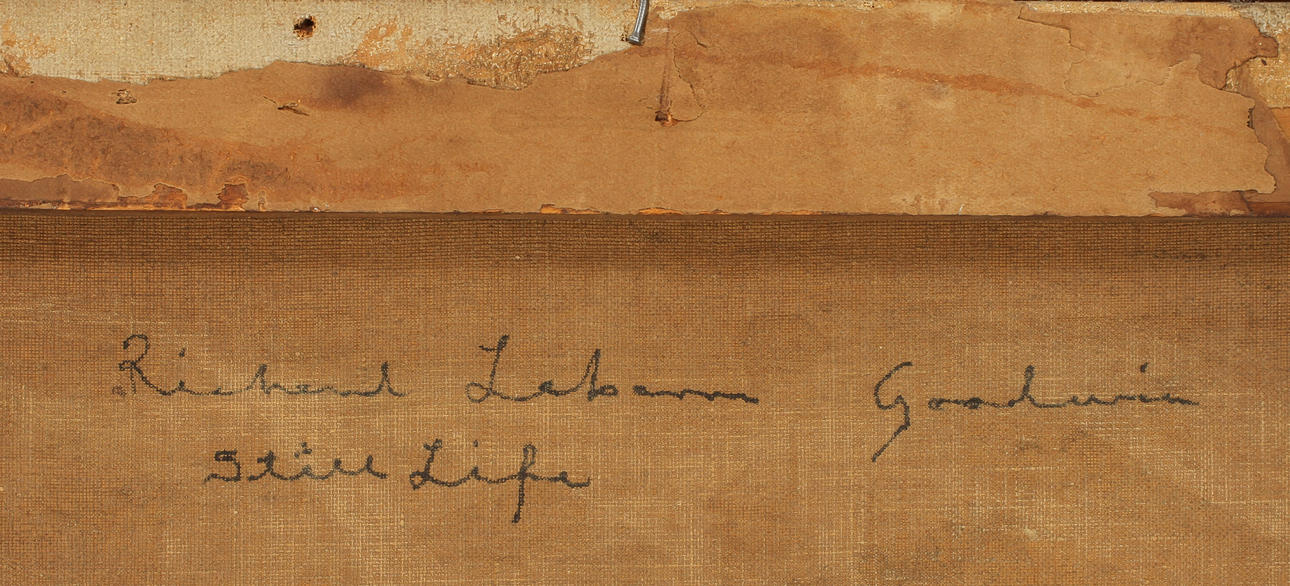 Richard Lebaron Goodwin
Still Life